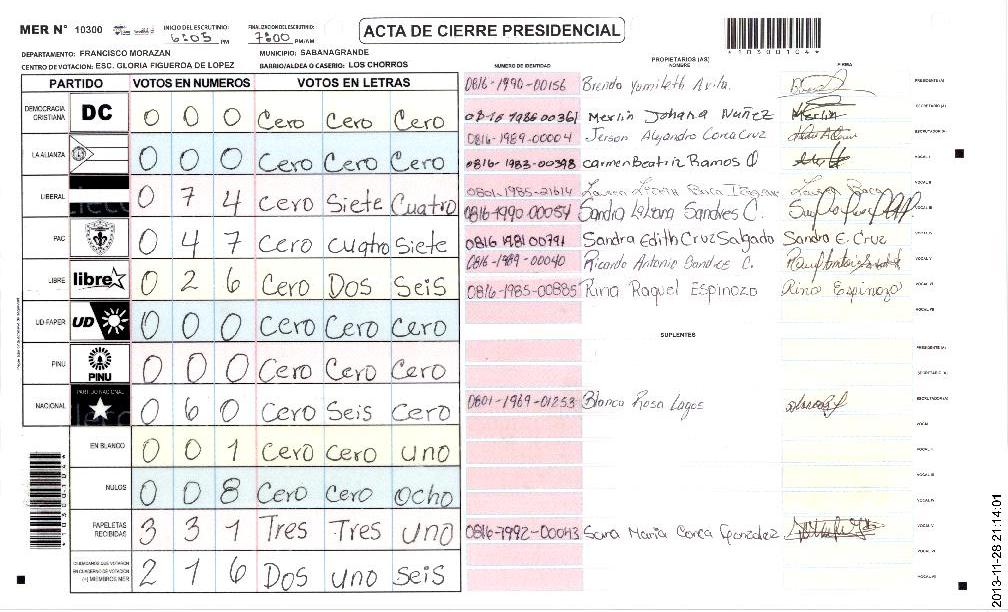 MER N° 10300
INICIO DEL ESCRUTINIO: 6:05 PM
FINALIZACION DEL ESCRUTINIO: 7:00 PM/AM
ACTA DE CIERRE PRESIDENCIAL
10300104
DEPARTAMENTO: FRANCISCO MORAZAN
MUNICIPIO: SABANAGRANDE
CENTRO DE VOTACION: ESC. GLORIA FIGUEROA DE LOPEZ
BARRIO/ALDEA O CASERIO: LOS CHORROS
PARTIDO VOTOS EN NUMEROS VOTOS EN LETRAS
DEMOCRACIA CRISTIANA DC 0 0 0 Cero Cero Cero
LA ALIANZA 0 0 0 Cero Cero Cero
LIBERAL 0 7 4 Cero Siete Cuatro
PAC 0 4 7 Cero cuatro Siete
LIBRE libre 0 2 6 Cero Dos Seis
UD-FAPER UD 0 0 0 Cero Cero Cero
PINU PINU 0 0 0 Cero Cero Cero
NACIONAL PARTIDO NACIONAL 0 6 0 Cero Seis Cero
EN BLANCO 0 0 1 Cero Cero uno
NULOS 0 0 8 Cero Cero Ocho
PAPELETAS RECIBIDAS 3 3 1 Tres Tres uno
CIUDADANOS QUE VOTARON EN CUADERNO DE VOTACION (+) MIEMBROS MER 2 1 6 Dos uno Seis
NUMERO DE IDENTIDAD PROPIETARIOS (AS) NOMBRE FIRMA
0816-1990-00156 Brenda Yumileth Avila. PRESIDENTE(A)
0816 1986 00361 Merlin Johana Nuñez Merlin SECRETARIO (A)
0816-1989-00004 Jerson Alejandro Corea Cruz ESCRUTADOR (A)
0816-1983-00398 Carmen Beatriz Ramos O VOCAL I
0801-1985-21614 VOCAL II
0816-1990-00054 Sandra VOCAL III
0816 1981 00791 Sandra Edith Cruz Salgado Sandra E. Cruz VOCAL IV
0816-1989-00040 Ricardo Antonio C. VOCAL V
0816-1985-00885 Rina Raquel Espinozo Rina Espinozo VOCAL VI
VOCAL VII
SUPLENTES
PRESIDENTE (A)
SECRETARIO (A)
0801-1969-01253 Blanca Rosa Lagos ESCRUTADOR(A)
VOCAL I
VOCAL II
VOCAL III
VOCAL IV
0816-1992-00043 Sara Maria Corea Gonzalez VOCAL V
VOCAL VI
VOCAL VII
10300104
2013-11-28 21:14:01